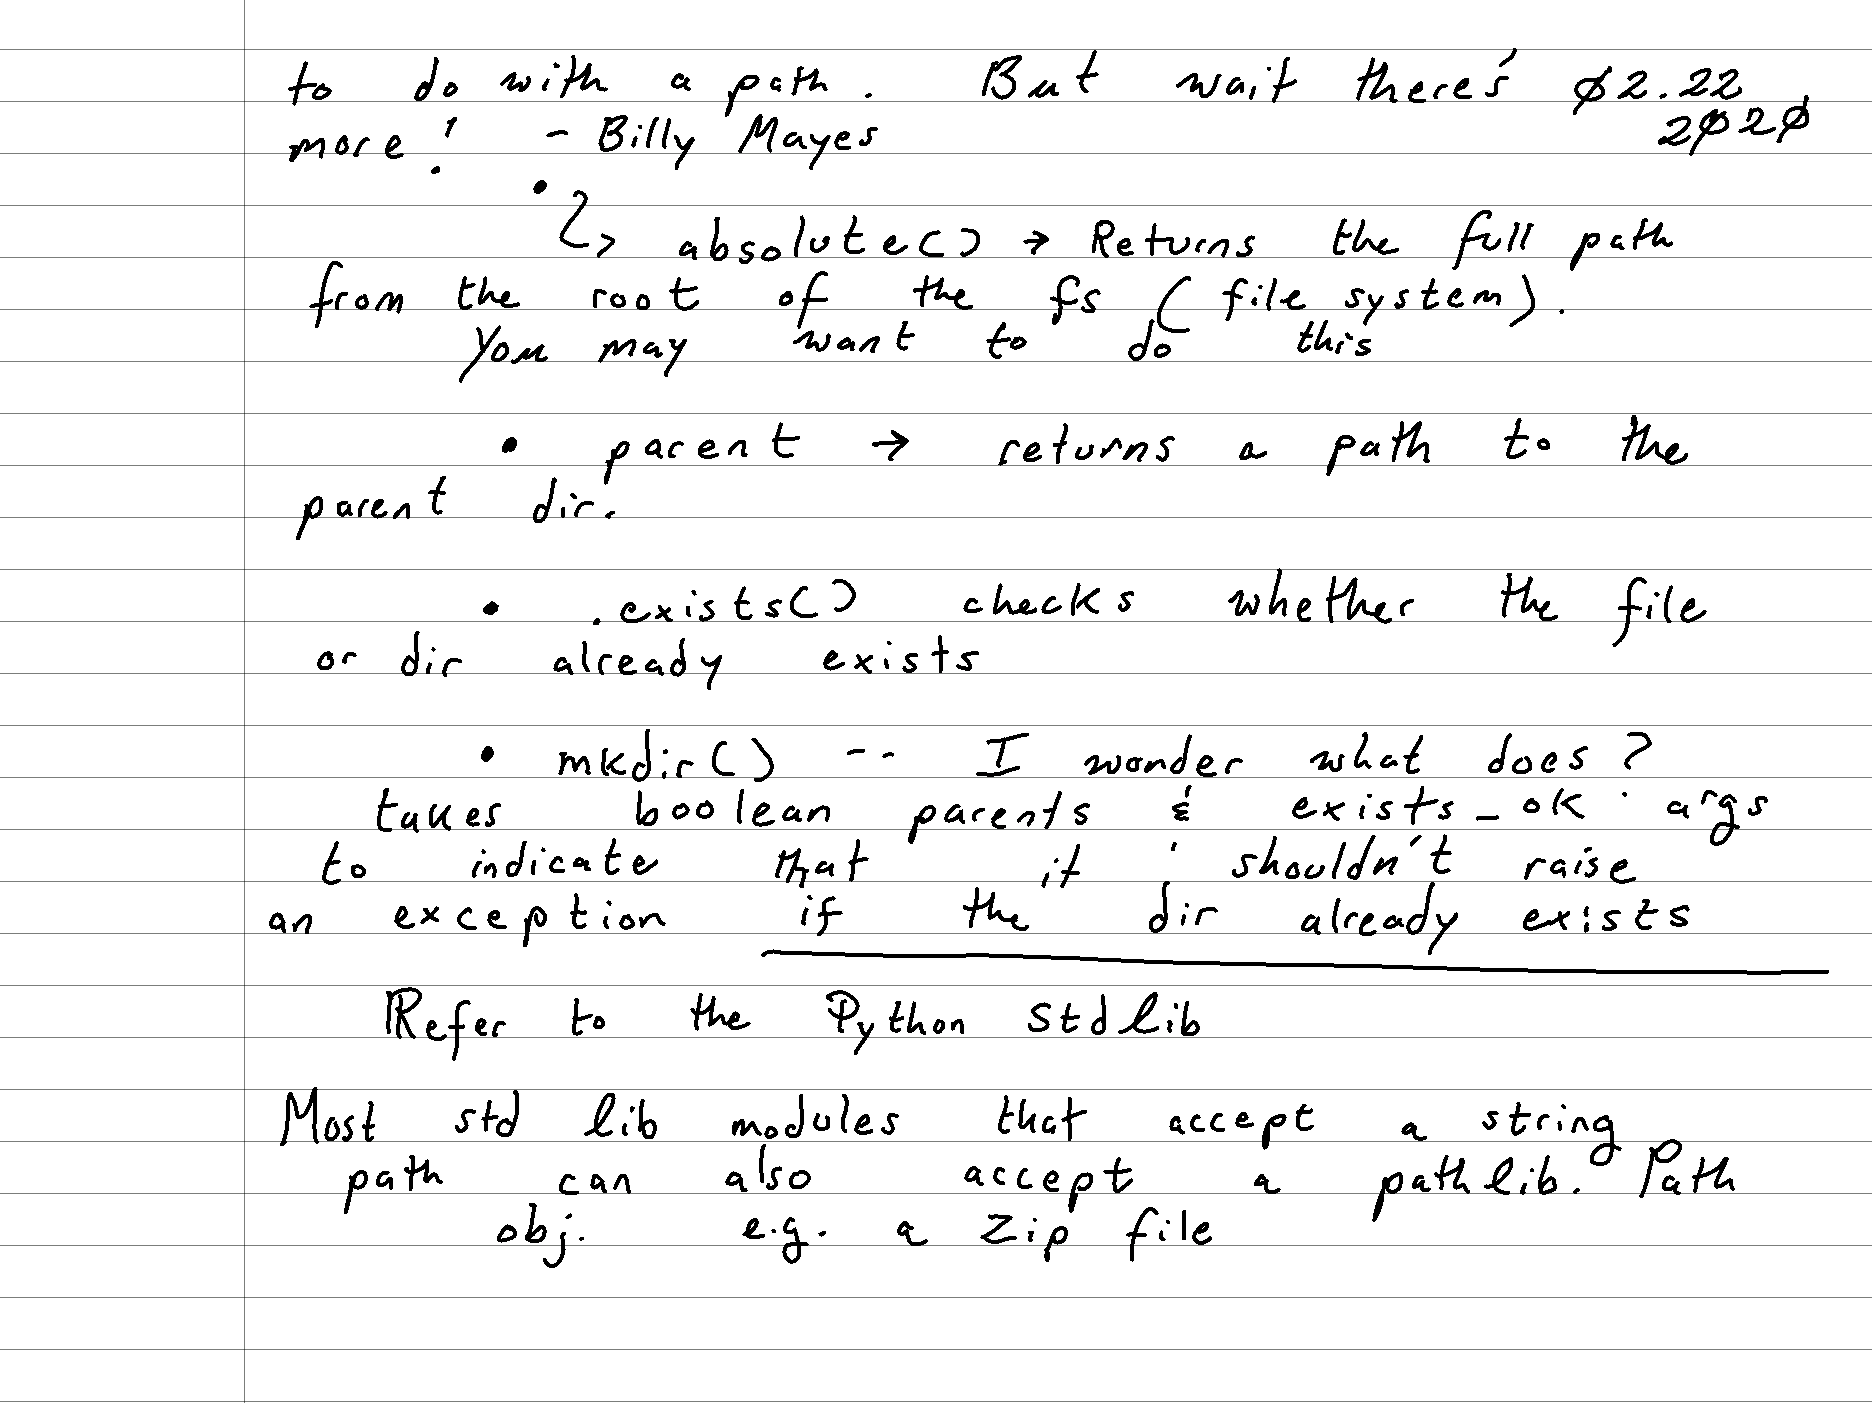 to do with a path. But wait there's 02.22
more! - Billy Mayes 2020
• absolute() → Returns the full path
from the root of the fs (file system).
You may want to do this
• parent → returns a path to the
parent dir.
• .exists() checks whether the file
or dir already exists
• mkdir() -- I wonder what does?
takes boolean parents & exists_ok args
to indicate that it shouldn't raise
an exception if the dir already exists
Refer to the Python std lib
Most std lib modules that accept a string
path can also accept a pathlib. Path
obj. e.g. a Zip file